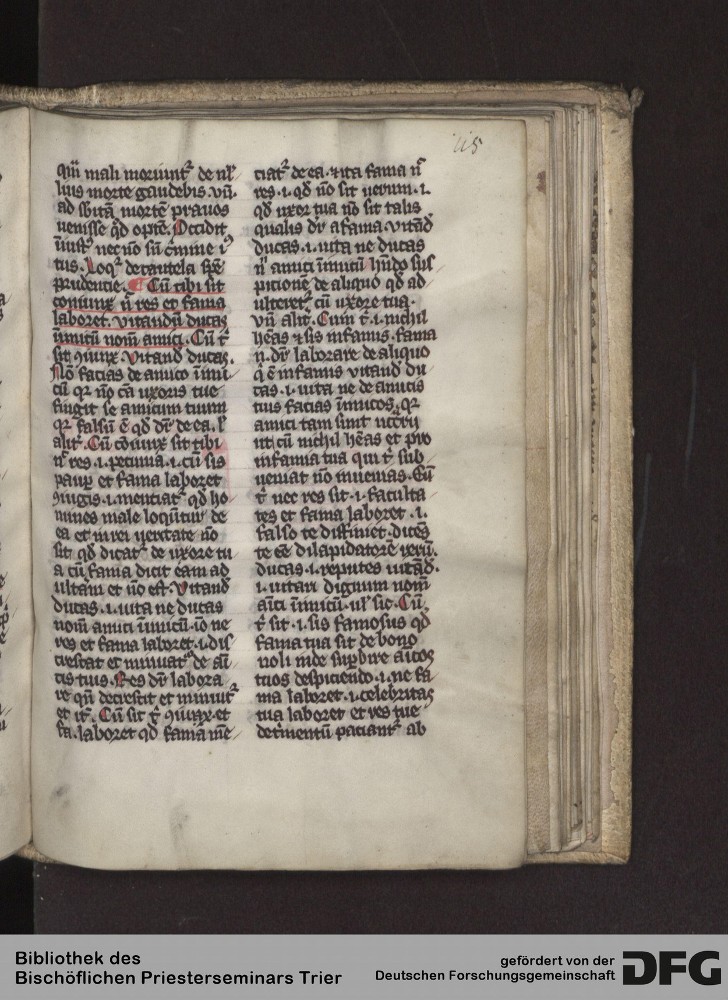 115
qn mali moriunt᷑ de nll̓
lius morte gaudebis. vn̄.
ad sb̓itā mortē prauos
uenisse qd̓ optē. Occidit
iniust᷑ nec nō sn̄ c̓mine iᷤ
tus. Loq᷑ de cautela spē
prudencie. ¶ Cū tibi sit
coniunx n̄ res et fama
laboret. vitandū ducas
inimicū nom̄ amici. Cū t᷑
sit ꝯiunx. Vitand̓ ducas.
Nō facias de amico inimi
cū qr nō cā uxoris tue
fingit se amicum tuum
qr falsū ē qd̓ dr̄ de ea. l̓
alit᷑. Cū cōiunx sit tibi
n᷑ res .i. pecunia .i. cū sis
paup et fama laboret
ꝯiugis .i. mentiat᷑ qd̓ ho
mines male loqūtur de
ea et in rei ueritate nō
sit qd̓ dicat᷑ de uxore tu
a cū fama dicit eam ad
ultam et nō est. Vitand̓
ducas .i. uita ne ducas
nom̄ amici inimicū .iō ne
res et fama laboret .i. dis
crescat et minuat᷑ de am̄
cis tuis. Res dr̄ labora
re qn̄ decrescit et minuit᷑
et it᷑. Cū sit t᷑ ꝯiunx et
fa. laboret qd̓ famā me
ciat᷑ de ea. ⁊ ita fama n̄
res .i. qd̓ nō sit uerum .i.
qd̓ uxor tua nō sit talis
qualis dr̄ a fama. vitād̓
ducas .i. uita ne ducas
n̄ amici inimicū hn̄do sus
picionē de aliquo qd̓ ad
ulteret᷑ cū uxore tua.
vn̄ alit᷑. Cum t᷑ .i. nichil
hēas ⁊ sis infamis. fama
n̄. dr̄ laborare de aliquo
q̓ ē infamis vitand̓ du
cas .i. uita ne de amicis
tuis facias inimicos. qr
amici tam sunt necc̄rii
ut cū nichil hēas et pro
infamia tua qui t᷑ sub
ueniat nō inuenias. Cū
t᷑ nec res sit .i. faculta
tes et fama laboret .i.
falso te diffamet. dicēs
te eē dilapidatorē rerū.
ducas .i. reputes uitād̓.
.i. uitari dignum nom̄
am̄ci inimicū. ul̓ sic. Cū
t᷑ sit .i. sis famosus qd̓
fama tua sit de bono
noli inde supbire am̄cos
tuos despiciendo .i. ne fa
ma laboret .i. celebritas
tua laboret et res tue
detrimentū paciant᷑ ab
Bibliothek des
Bischöflichen Priesterseminars Trier
gefördert von der
Deutschen Forschungsgemeinschaft
DFG